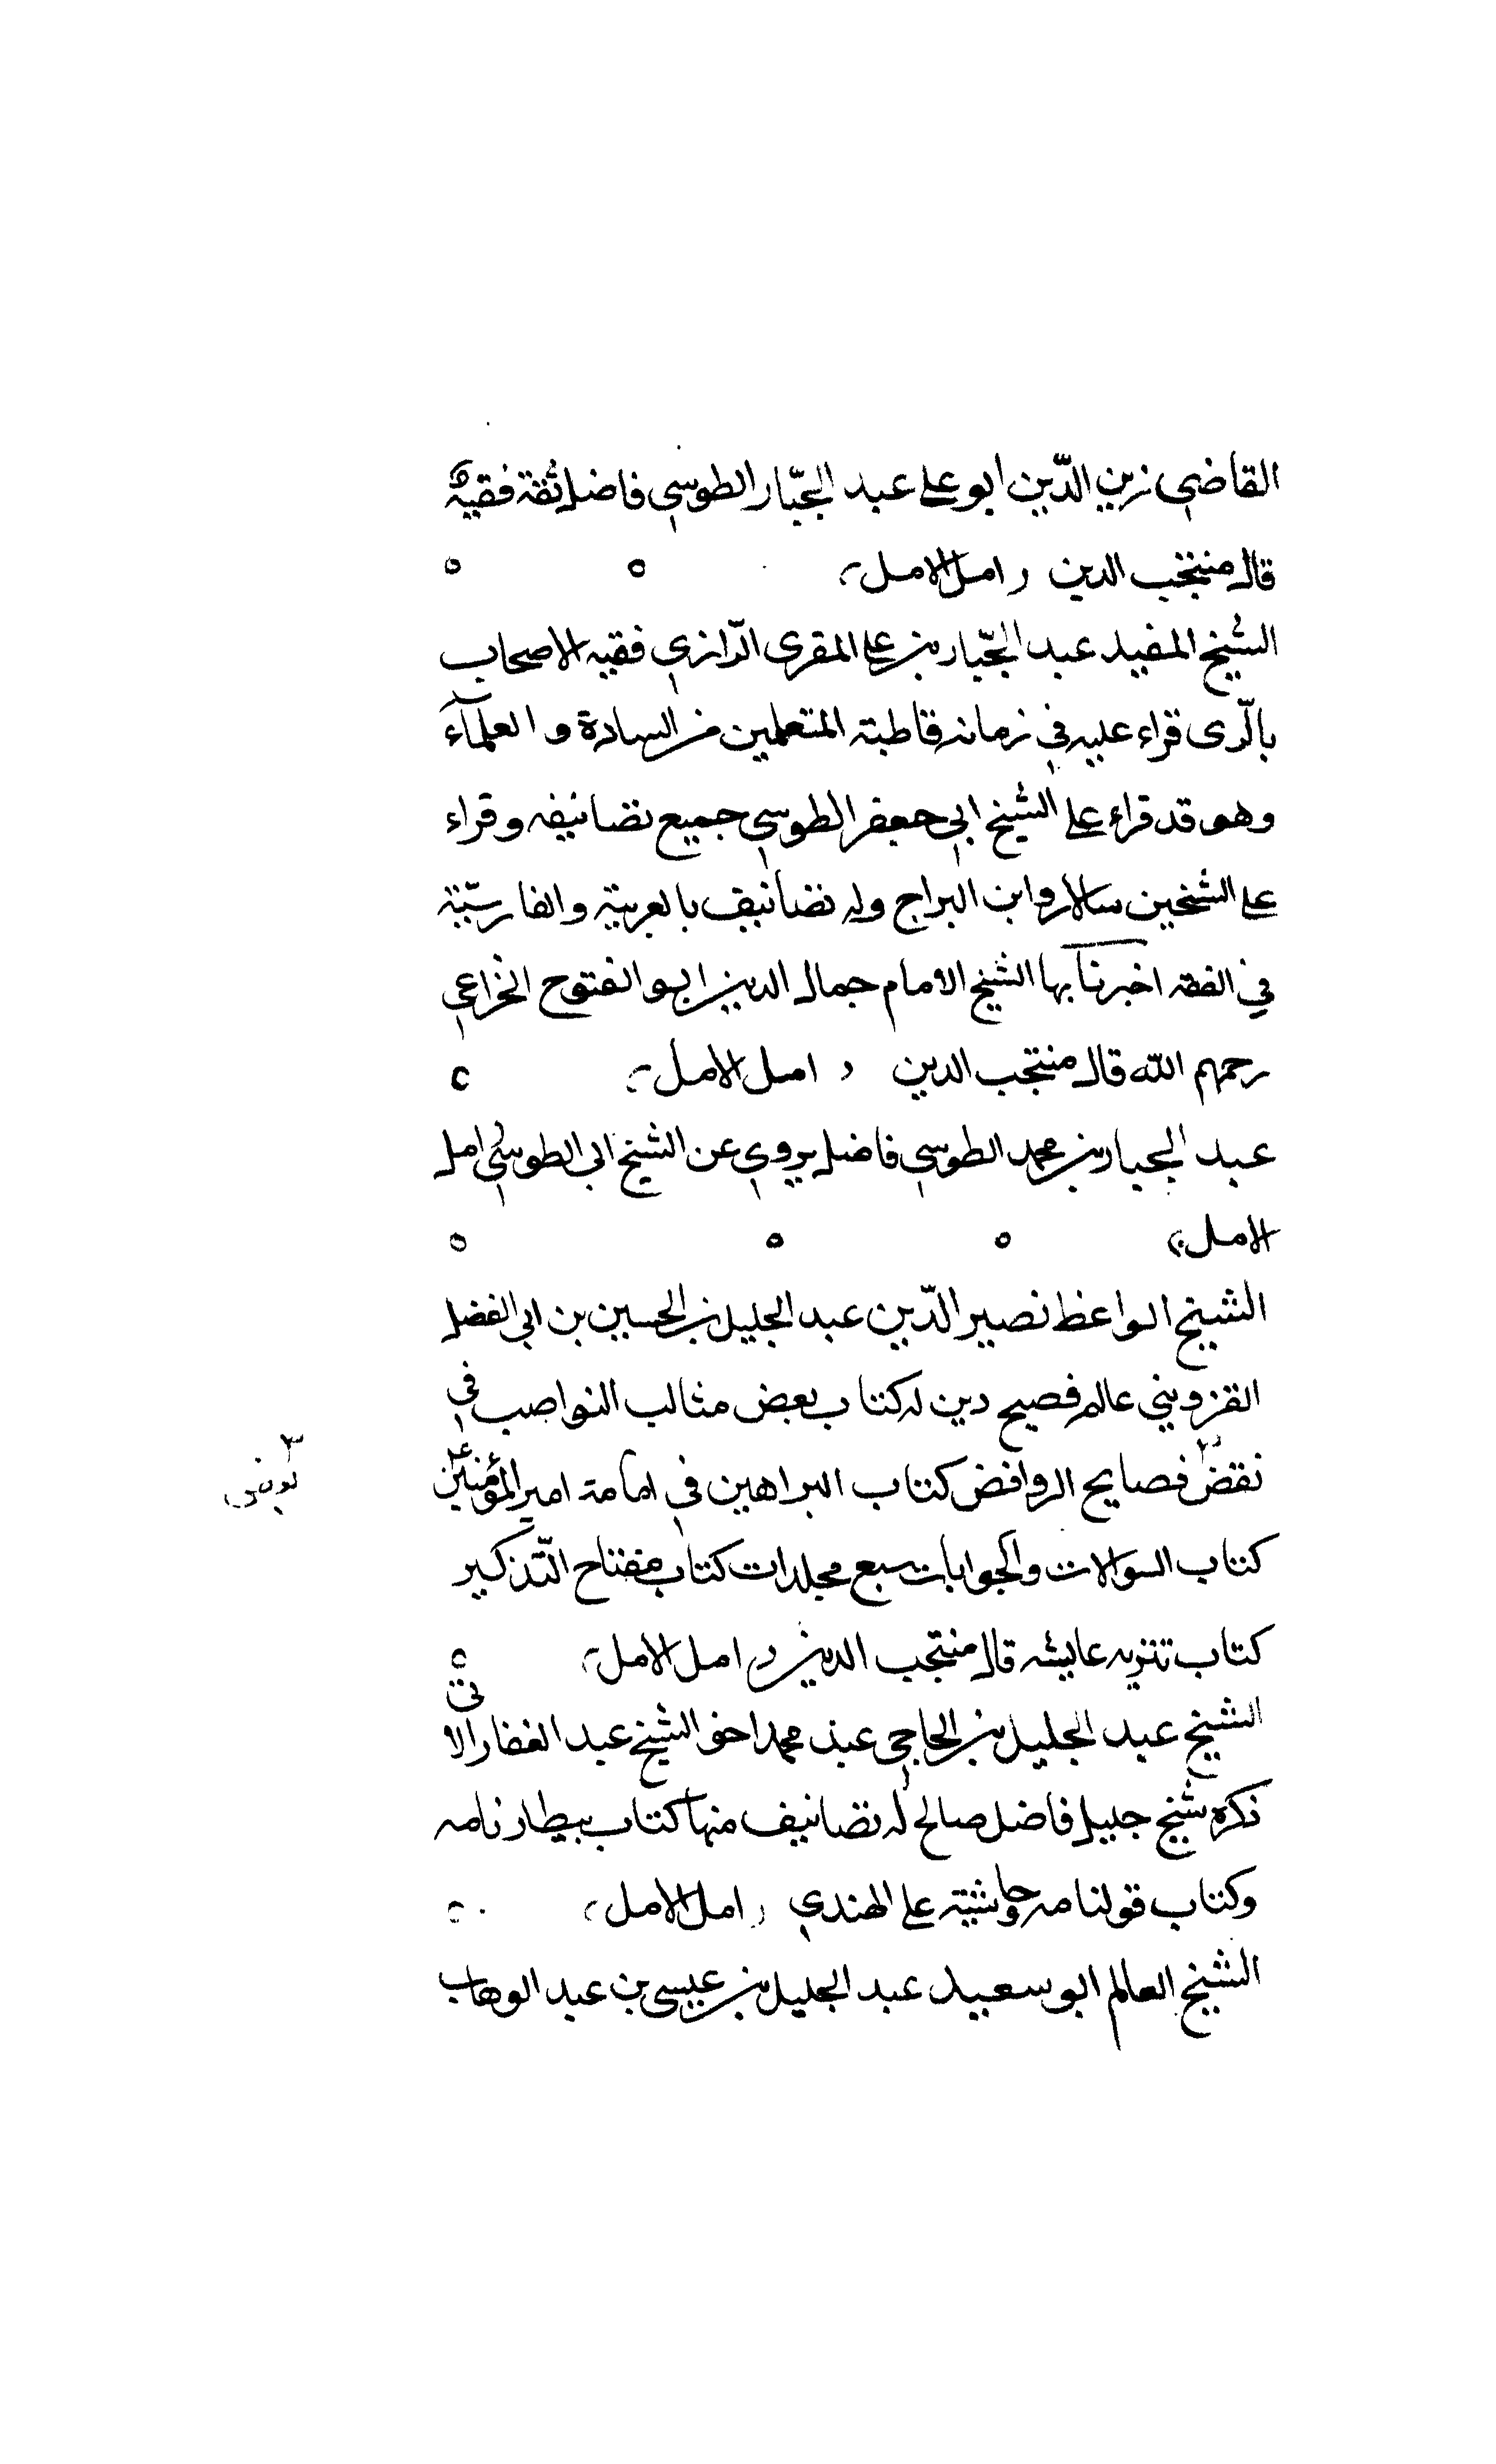 القاضي زين الدّين ابو علي عبد الجبّار الطوسي فاضل ثقة فقيه
قال منتجب الدين امل الامل
الشيخ المفيد عبد الجبّار بن علي المقرى الرّازي فقيه الاصحاب
بالرّى قراء عليه في زمانه قاطبة المتعلمين من السادة و العلمآء
وهو قد قراء علي الشيخ ابي جعفر الطوسي جميع تصانيفه وقراء
علي الشيخين سالار وابن البراج وله تصانيف بالعربية والفارسيّة
في الفقه اخبرنا بها الشيخ الامام جمال الدين ابو الفتوح الخزاعي
رحمهم الله قال منتجب الدين امل الامل
عبد الجبار بن محمد الطوسي فاضل يروي عن الشيخ ابي الطوسي امل
الامل
الشيخ الواعظ نصير الدّين عبد الجليل بن الحسين بن ابي الفضل
القزويني عالم فصيح دين له كتاب بعض مثالب النواصب في
نقض فصايح الروافض كتاب البراهين في امامة امير المؤمنين
كتاب السوالات والجوابات سبع مجلدات كتاب مفتاح التّذكير
كتاب تنزيه عايشه قال منتجب الدين امل الامل
الشيخ عبد الجليل بن الحاجي محمد اخو الشيخ عبد الغفار الاتي
ذكره شيخ جليل فاضل صالح له تصانيف منها كتاب بيطار نامه
وكتاب قولنامه وحاشية علي الهندي امل الامل
الشيخ العالم ابو سعيد عبد الجليل بن عيسى بن عبد الوهاب